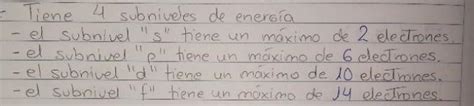 - Tiene 4 subniveles de energía
- el subnivel "s" tiene un máximo de 2 electrones.
- el subnivel "p" tiene un máximo de 6 electrones.
- el subnivel "d" tiene un máximo de 10 electrones.
- el subnivel "f" tiene un máximo de 14 electrones.